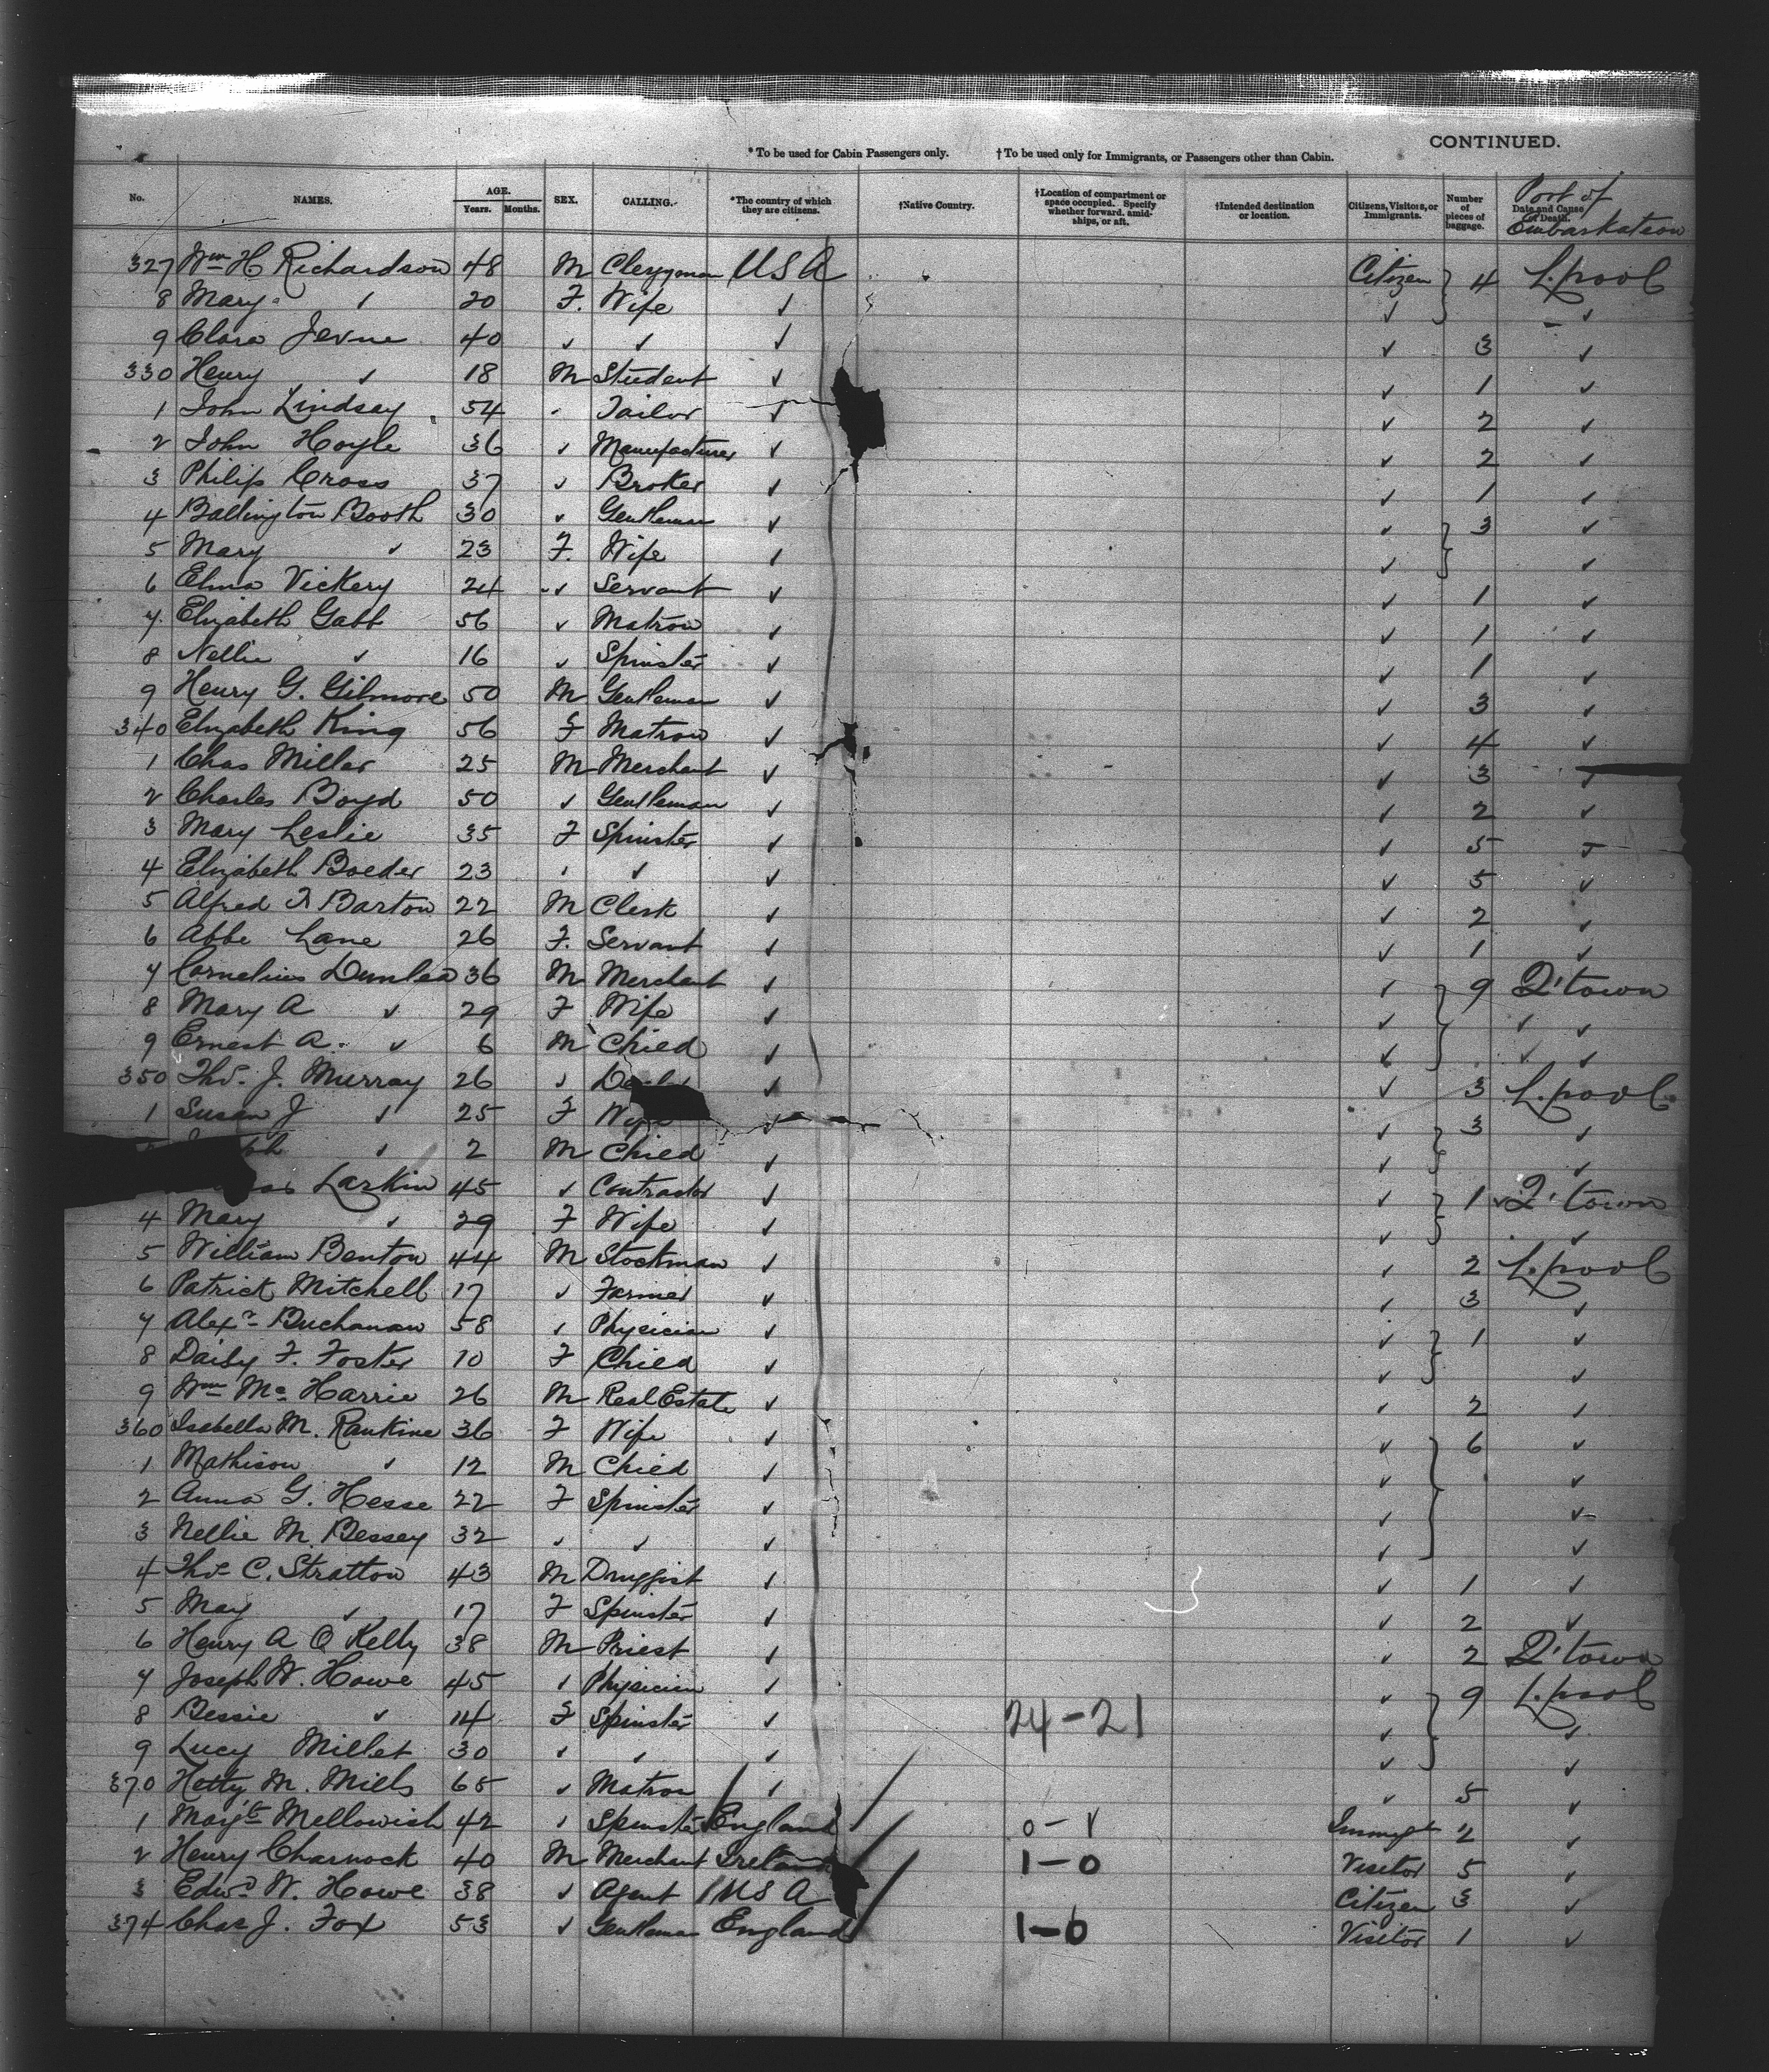 CONTINUED.
* To be used for Cabin Passengers only. † To be used only for Immigrants, or Passengers other than Cabin.
No. NAMES. AGE. Years. Months. SEX. CALLING. *The country of which they are citizens. †Native Country. †Location of compartment or space occupied. Specify whether forward, amidships, or aft. †Intended destination or location. Citizens, Visitors, or Immigrants. Number of pieces of baggage. Date and Cause of Death. Port of Embarkation
327 Wm H Richardson 48 M Clergyman USA Citizen 4 L.pool
8 Mary " 20 F. Wife ✓ ✓ ✓
9 Clara Jevne 40 ✓ ✓ ✓ ✓ 3 ✓
330 Henry ✓ 18 M Student ✓ ✓ 1 ✓
1 John Lindsay 54 " Tailor ✓ ✓ 2 ✓
2 John Hoyle 36 ✓ Manufacturer ✓ ✓ 2 ✓
3 Philip Cross 37 ✓ Broker ✓ ✓ 1 ✓
4 Ballington Booth 30 ✓ Gentleman ✓ ✓ 3 ✓
5 Mary ✓ 23 F. Wife ✓ ✓ ✓
6 Elma Vickery 24 ✓ Servant ✓ ✓ 1 ✓
7 Elizabeth Gabb 56 ✓ Matron ✓ ✓ 1 ✓
8 Nellie ✓ 16 ✓ Spinster ✓ ✓ 1 ✓
9 Henry G. Gilmore 50 M Gentleman ✓ ✓ 3 ✓
340 Elizabeth King 56 F Matron ✓ ✓ 4 ✓
1 Chas Miller 25 M Merchant ✓ ✓ 3 ✓
2 Charles Boyd 50 ✓ Gentleman ✓ ✓ 2 ✓
3 Mary Leslie 35 F Spinster ✓ ✓ 5 ✓
4 Elizabeth Boeder 23 ✓ ✓ ✓ ✓ 5 ✓
5 Alfred Barton 22 M Clerk ✓ ✓ 2 ✓
6 Abbe Lane 26 F. Servant ✓ ✓ 1 ✓
7 Cornelius Dunlea 36 M Merchant ✓ ✓ 9 Q'town
8 Mary A ✓ 29 F Wife ✓ ✓ ✓ ✓
9 Ernest A. ✓ 6 M Child ✓ ✓ ✓ ✓
350 Thos. J. Murray 26 ✓ ✓ ✓ 3 L.pool
1 Susan J ✓ 25 F Wife ✓ ✓ 3 ✓
✓ 2 M Child ✓ ✓ ✓
Larkin 45 ✓ Contractor ✓ ✓ 1 ✓ Q'town
4 Mary ✓ 29 F Wife ✓ ✓ ✓
5 William Benton 44 M Stockman ✓ ✓ 2 L.pool
6 Patrick Mitchell 17 ✓ Farmer ✓ ✓ 3 ✓
7 Alexr Buchanan 58 ✓ Physician ✓ ✓ 1 ✓
8 Daisy F. Foster 10 F Child ✓ ✓ ✓
9 Wm Mc Harrie 26 M Real Estate ✓ ✓ 2 ✓
360 Isabella M. Rankine 36 F Wife ✓ ✓ 6 ✓
1 Mathison ✓ 12 M Child ✓ ✓ ✓
2 Anna G. Hesse 22 F Spinster ✓ ✓ ✓
3 Nellie M. Bessey 32 ✓ ✓ ✓ ✓ ✓
4 Thos C. Stratton 43 M Druggist ✓ ✓ 1 ✓
5 May ✓ 17 F Spinster ✓ ✓ 2 ✓
6 Henry A O'Kelly 38 M Priest ✓ ✓ 2 Q'town
7 Joseph W. Howe 45 ✓ Physician ✓ ✓ 9 L.pool
8 Bessie ✓ 14 F Spinster ✓ 24-21 ✓ ✓
9 Lucy Millet 30 ✓ ✓ ✓ ✓ ✓
370 Hetty M. Mills 65 ✓ Matron ✓ ✓ 5 ✓
1 Margt Mellowish 42 ✓ Spinster England 0-1 Immigt 2 ✓
2 Henry Charnock 40 M Merchant Ireland 1-0 Visitor 5 ✓
3 Edwd W. Howe 38 ✓ Agent USA Citizen 3 ✓
374 Chas J. Fox 53 ✓ Gentleman England 1-0 Visitor 1 ✓